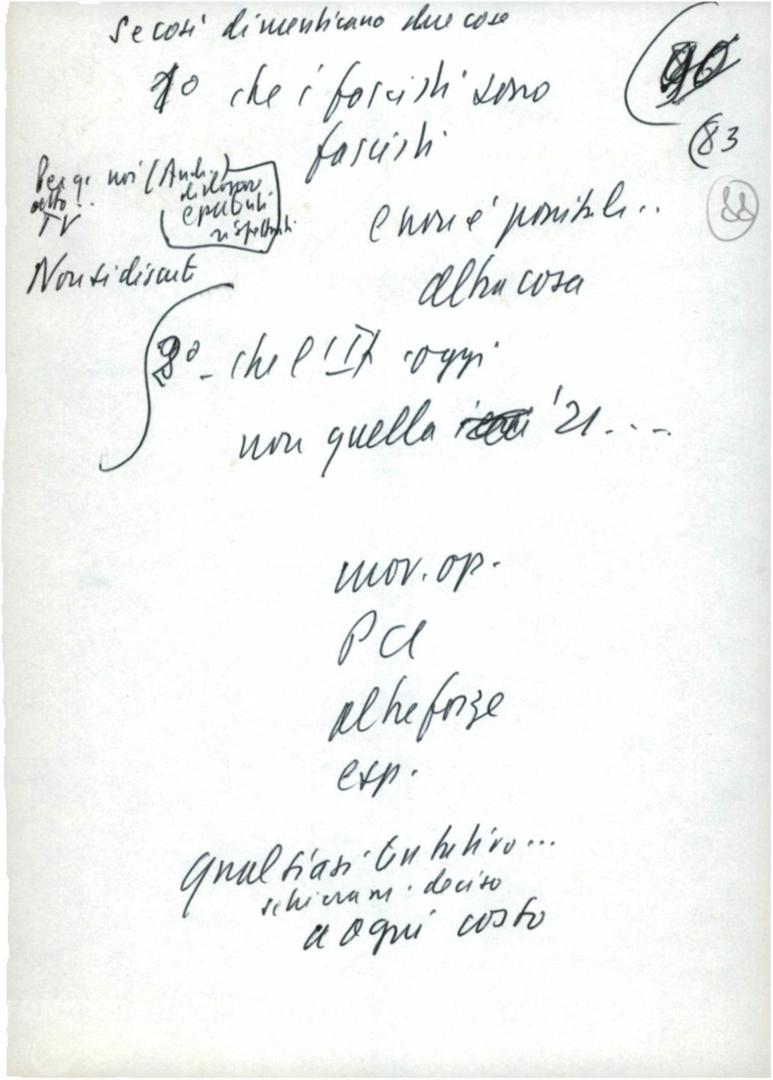 Se così dimenticano due cose
90
1° che i fascisti sono
fascisti
(83
88
Per q. noi (Audi)
detto..
TV
e pubbli.
rispettati
e non è possibile..
Non si discute
altra cosa
2° - che l'IT oggi
non quella '21....
mov. op.
PCI
altre forze
esp.
Qualsiasi tentativo...
schieram. deciso
a ogni costo